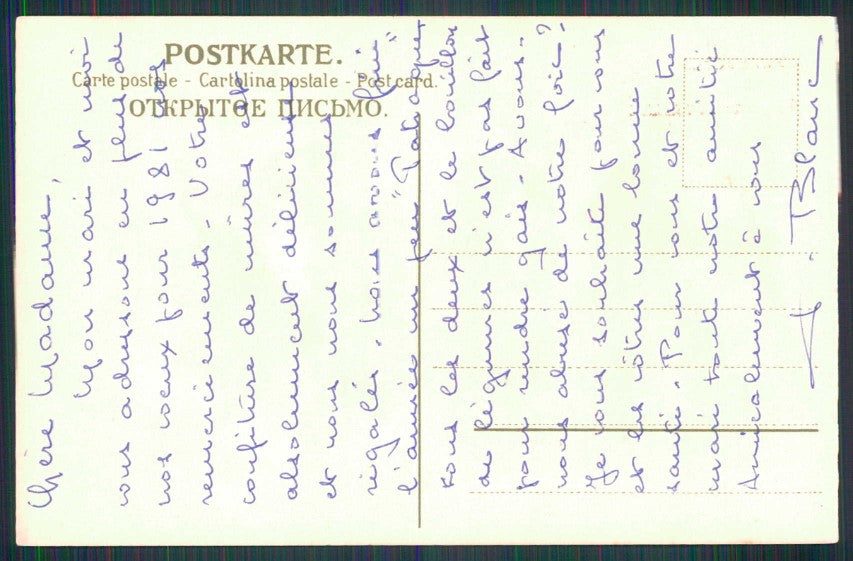 POSTKARTE.
Carte postale - Cartolina postale - Post card.
ОТКРЫТОЕ ПИСЬМО.
Chère Madame,
Mon mari et moi
vous adressons en plus de
nos voeux pour 1981 nos
remerciements. Votre
confiture de mûres est
absolument délicieuse
et nous nous sommes
régalés. Nous avons fini
l'année un peu "Patraques"
tous les deux et le bouillon
de légumes n'est pas fait
pour rendre gais. Avons-
nous abusé de votre foie?
Je vous souhaite pour vous
et les vôtres une bonne
santé. Pour vous et votre
mari toute notre amitié
Amicalement à vous
Blanc